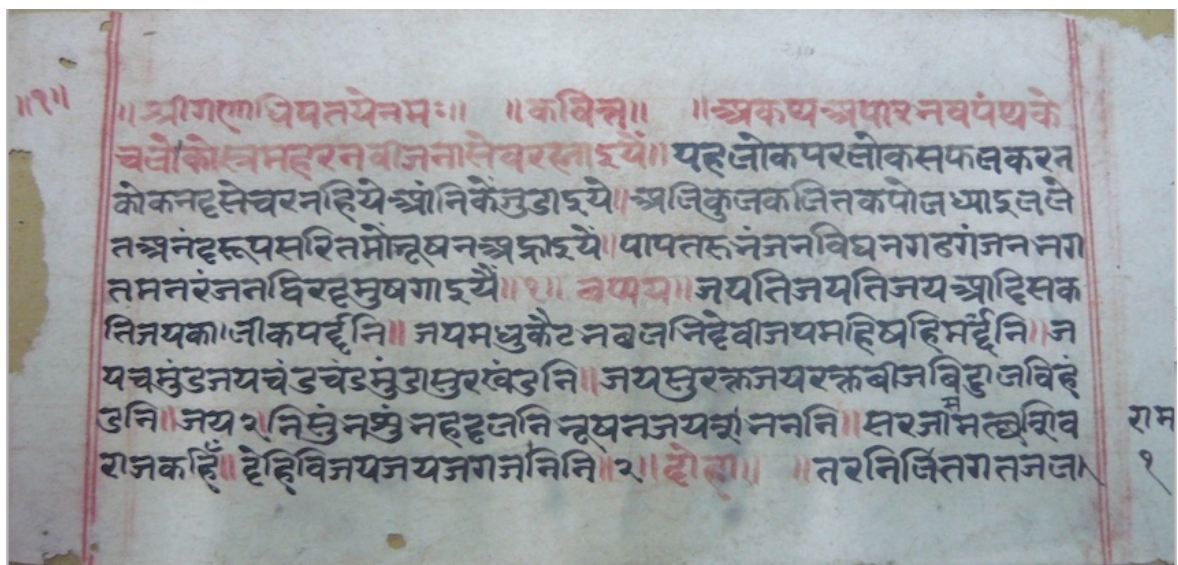 ॥१॥ ॥श्रीगणाधिपतयेनमः॥ ॥कवित्त॥ ॥अकथअपारनवपंथके
चलेकोस्रमहरनबीजनासेवरम्नाइयैं॥यहलोकपरलोकसफलकरन
कोकनदसेचरनहियेआंनिकेंजुडाइये॥अलिकुलकलितकपोलध्याइलले
तअनंदरूपसरितमेंभूषनअन्हाइयें॥पापतरुभंजनविघनगढगंजनभग
तमनरंजनद्विरदमुषगाइयैं॥१॥छप्पय॥जयतिजयतिजयआदिसक
तिजयकालीकपर्द्दनि॥जयमधुकैटभछलनिदेवीजयमहिषहिमर्द्दनि॥ज
यचमुंडजयचंडचंडमुंडासुरखंडनि॥जयसुरक्तजयरक्तबीजबिड्डालविहं
डनि॥जय२।निसुंभशुंभहदलनिभूषनजयजयभनननि॥सरजामसत्थशिव
राजकहिँ॥देहिविजयजयजगजननि॥२॥दोहा॥ ॥तरनिर्जितगतजल
राम
१